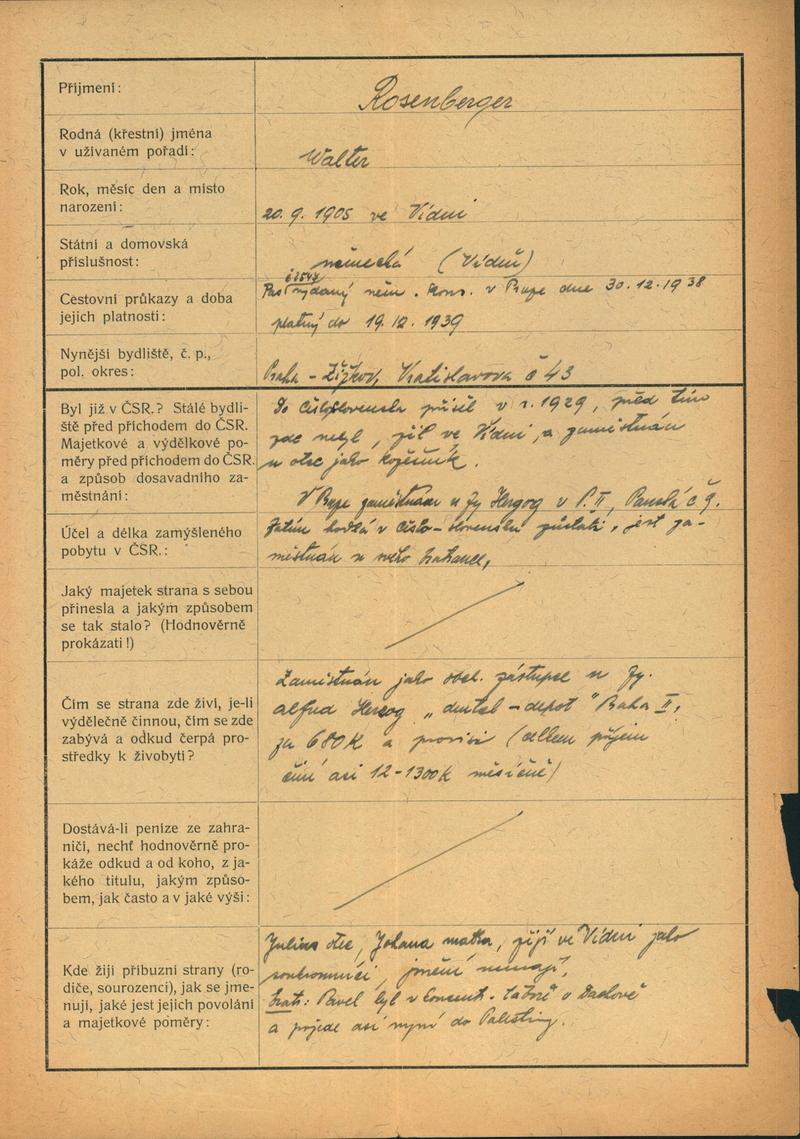 Příjmení:
Rosenberger
Rodná (křestní) jména
v užívaném pořadí:
Walter
Rok, měsíc den a místo
narození:
20. 9. 1905 ve Vídni
Státní a domovská
příslušnost:
německá (Vídeň)
Cestovní průkazy a doba
jejich platnosti:
Pas vydaný něm. kons. v Praze dne 30.12.1938
platný do 19. 12. 1939
Nynější bydliště, č. p.,
pol. okres:
Praha - Žižkov, Vratislavova č 43
Byl již v ČSR.? Stálé bydli-
ště před příchodem do ČSR.
Majetkové a výdělkové po-
měry před příchodem do ČSR.
a způsob dosavadního za-
městnání:
Do Československa přišel v r. 1929, před tím
zde nebyl, žil ve Vídni, a zaměstnán
u otce jako
V Praze zaměstnán u fy Herzog v P. II, Panská č 9.
Účel a délka zamýšleného
pobytu v ČSR.:
Zatím hodlá v Česko-slovensku zůstati, jest za-
městnán u
Jaký majetek strana s sebou
přinesla a jakým způsobem
se tak stalo? (Hodnověrně
prokázati!)
Čím se strana zde živí, je-li
výdělečně činnou, čím se zde
zabývá a odkud čerpá pro-
středky k živobytí?
Zaměstnán jako obch. zástupce u fy.
Alfred Herzog „dental - depot" Praha II,
za 680 K a provisi (celkem příjem
činí asi 12-1300 K měsíčně)
Dostává-li peníze ze zahra-
ničí, nechť hodnověrně pro-
káže odkud a od koho, z ja-
kého titulu, jakým způso-
bem, jak často a v jaké výši:
Kde žijí příbuzní strany (ro-
diče, sourozenci), jak se jme-
nují, jaké jest jejich povolání
a majetkové poměry:
Julius otec, Johana matka, žijí ve Vídni jako
soukromníci, jmění nemají,
bratr: Pavel byl v koncent. táboře v Dachově
a pojede asi nyní do Palestiny.